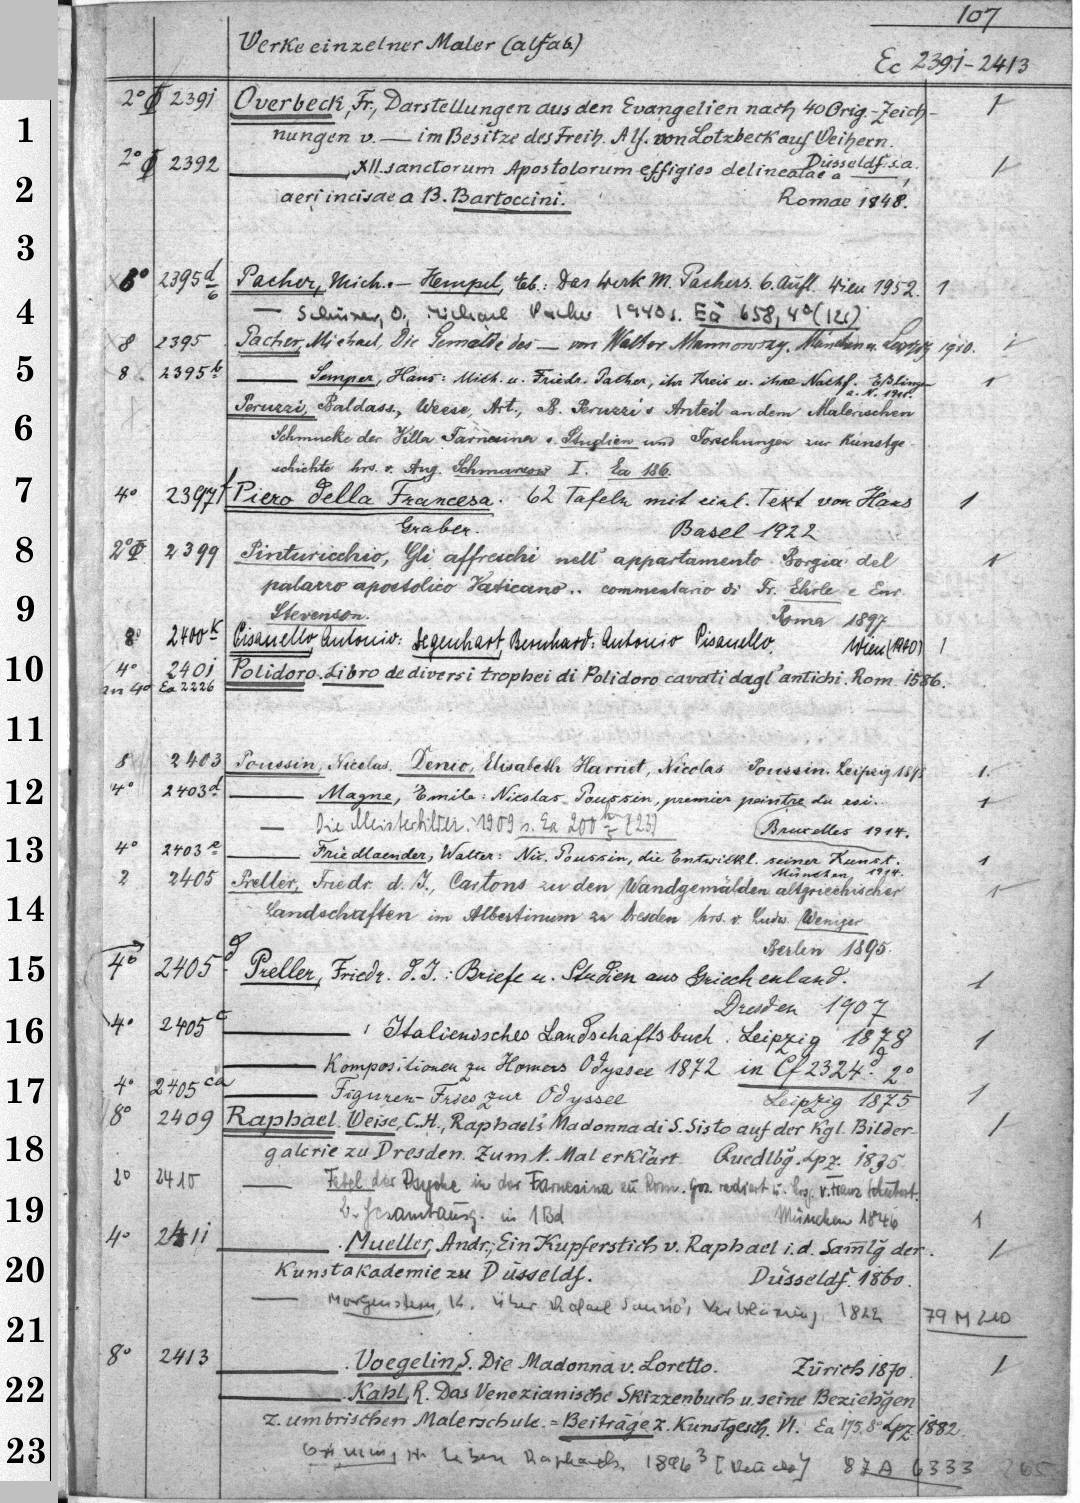 107
Werke einzelner Maler (alfab.)
Ec 2391-2413
2° 2391 Overbeck, Fr., Darstellungen aus den Evangelien nach 40 Orig.-Zeich- 1
1
nungen v. — im Besitze des Freih. Alf. von Lotzbeck auf Weihern.
Düsseldf. s.a.
2° 2392 —, XII. sanctorum Apostolorum effigies delineatae a 1
2
aeri incisae a B. Bartoccini. Romae 1848.
3
8° 2395 d/6 Pacher, Mich. — Hempel, Eb.: Das Werk M. Pachers. 6. Aufl. Wien 1952. 1
4
— O. Michael Pacher 1940 s. Ea 658, 4°(121)
8 2395 Pacher, Michael, Die Gemälde des — von Walter Mannowsky. München u. Leipzig 1910. 1
5
8. 2395 b — Semper, Hans: Mich. u. Friedr. Pacher, ihr Kreis u. ihre Nachf. Eßlingen 1
a. N. 1911.
Peruzzi, Baldass., Weese, Art., B. Peruzzi's Anteil an dem Malerischen
6
Schmucke der Villa Farnesina s. Studien und Forschungen zur Kunstge-
schichte hrs. v. Aug. Schmarsow I. Ea 186.
7
4° 2397 f Piero della Francesca. 62 Tafeln mit einl. Text von Hans 1
Graber. Basel 1922
8
2° 2399 Pinturicchio, Gli affreschi nell' appartamento Borgia del 1
palazzo apostolico Vaticano.. commentario di Fr. Ehrle e Enr.
9
Stevenson. Roma 1897
8° 2400 k Pisanello, Antonio: Degenhart, Bernhard: Antonio Pisanello. Wien (1940) 1
10
4° 2401 Polidoro. Libro de diversi trophei di Polidoro cavati dagl' antichi. Rom 1586.
an 4° Ea 2226
11
8 2403 Poussin, Nicolas. Denio, Elisabeth Harriet, Nicolas Poussin. Leipzig 1898 1.
12
4° 2403 d — Magne, Emile: Nicolas Poussin, premier peintre du roi.. 1
— Die Meisterbilder. 1909 s. Ea 200 h/5 (23) Bruxelles 1914.
13
4° 2403 e — Friedlaender, Walter: Nic. Poussin, die Entwickl. seiner Kunst. 1
München 1914.
2 2405 Preller, Friedr. d. J., Cartons zu den Wandgemälden altgriechischer 1
14
Landschaften im Albertinum zu Dresden hrs. v. Ludw. Weniger
Berlin 1895.
15
4° 2405 d Preller, Friedr. d. J.: Briefe u. Studien aus Griechenland. 1
Dresden 1907
16
4° 2405 c —, Italienisches Landschaftsbuch. Leipzig 1878 1
— Kompositionen zu Homers Odyssee 1872 in Cf 2324 d. 2°
17
4° 2405 ca — Figuren-Fries zur Odyssee Leipzig 1875 1
8° 2409 Raphael. Weise, C.H., Raphael's Madonna di S. Sisto auf der Kgl. Bilder- 1
18
galerie zu Dresden. Zum 1. Mal erklärt Quedlbg. Lpz. 1835
2° 2410 — Fabel der Psyche in der Farnesina zu Rom. Gez. radiert u. hrsg. v. Franz Schubert.
19
2. Gesamtausg. in 1 Bd München 1846 1
4° 2411 —. Mueller, Andr., Ein Kupferstich v. Raphael i. d. Samlg der 1
20
Kunstakademie zu Düsseldf. Düsseldf. 1860.
— Morgenstern, K. über Rafael Sanzio's Verklärung 1822 79 M 210
21
8° 2413 —. Voegelin, S. Die Madonna v. Loretto. Zürich 1870. 1
22
—. Kahl, R. Das Venezianische Skizzenbuch u. seine Beziehgen
z. umbrischen Malerschule. = Beiträge z. Kunstgesch. VI. Ea 175, 8° Lpz 1882.
23
Leben Raphaels. 1896 3 87 A 6333 265